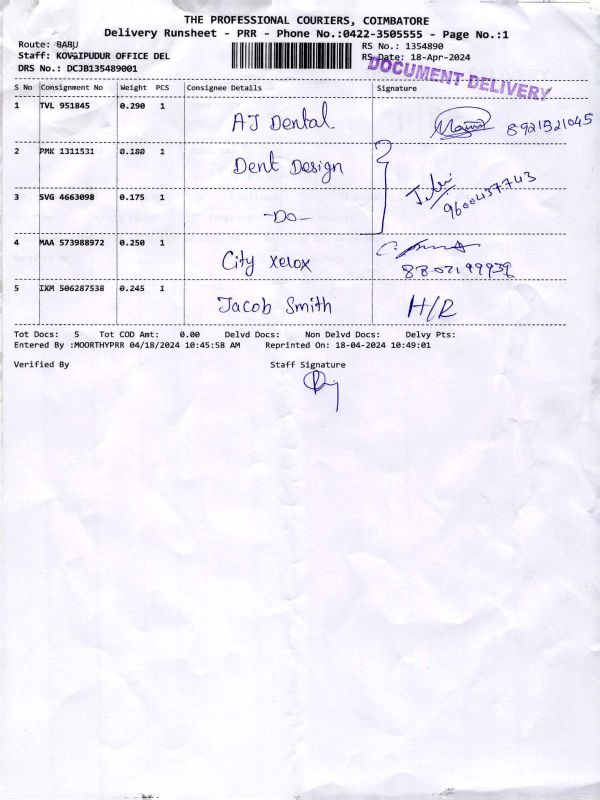 THE PROFESSIONAL COURIERS, COIMBATORE
Delivery Runsheet - PRR - Phone No.:0422-3505555 - Page No.:1
Route: BABU RS No.: 1354890
Staff: KOVAIPUDUR OFFICE DEL RS Date: 18-Apr-2024
DRS No.: DCJB135489001
DOCUMENT DELIVERY
S No Consignment No Weight PCS Consignee Details Signature
1 TVL 951845 0.290 1 AJ Dental 8921521045
2 PMK 1311531 0.180 1 Dent Design
3 SVG 4663098 0.175 1 -Do- 9600437743
4 MAA 573988972 0.250 1 City xerox 8807199939
5 IXM 506287538 0.245 1 Jacob Smith H/R
Tot Docs: 5 Tot COD Amt: 0.00 Delvd Docs: Non Delvd Docs: Delvy Pts:
Entered By :MOORTHYPRR 04/18/2024 10:45:58 AM Reprinted On: 18-04-2024 10:49:01
Verified By Staff Signature